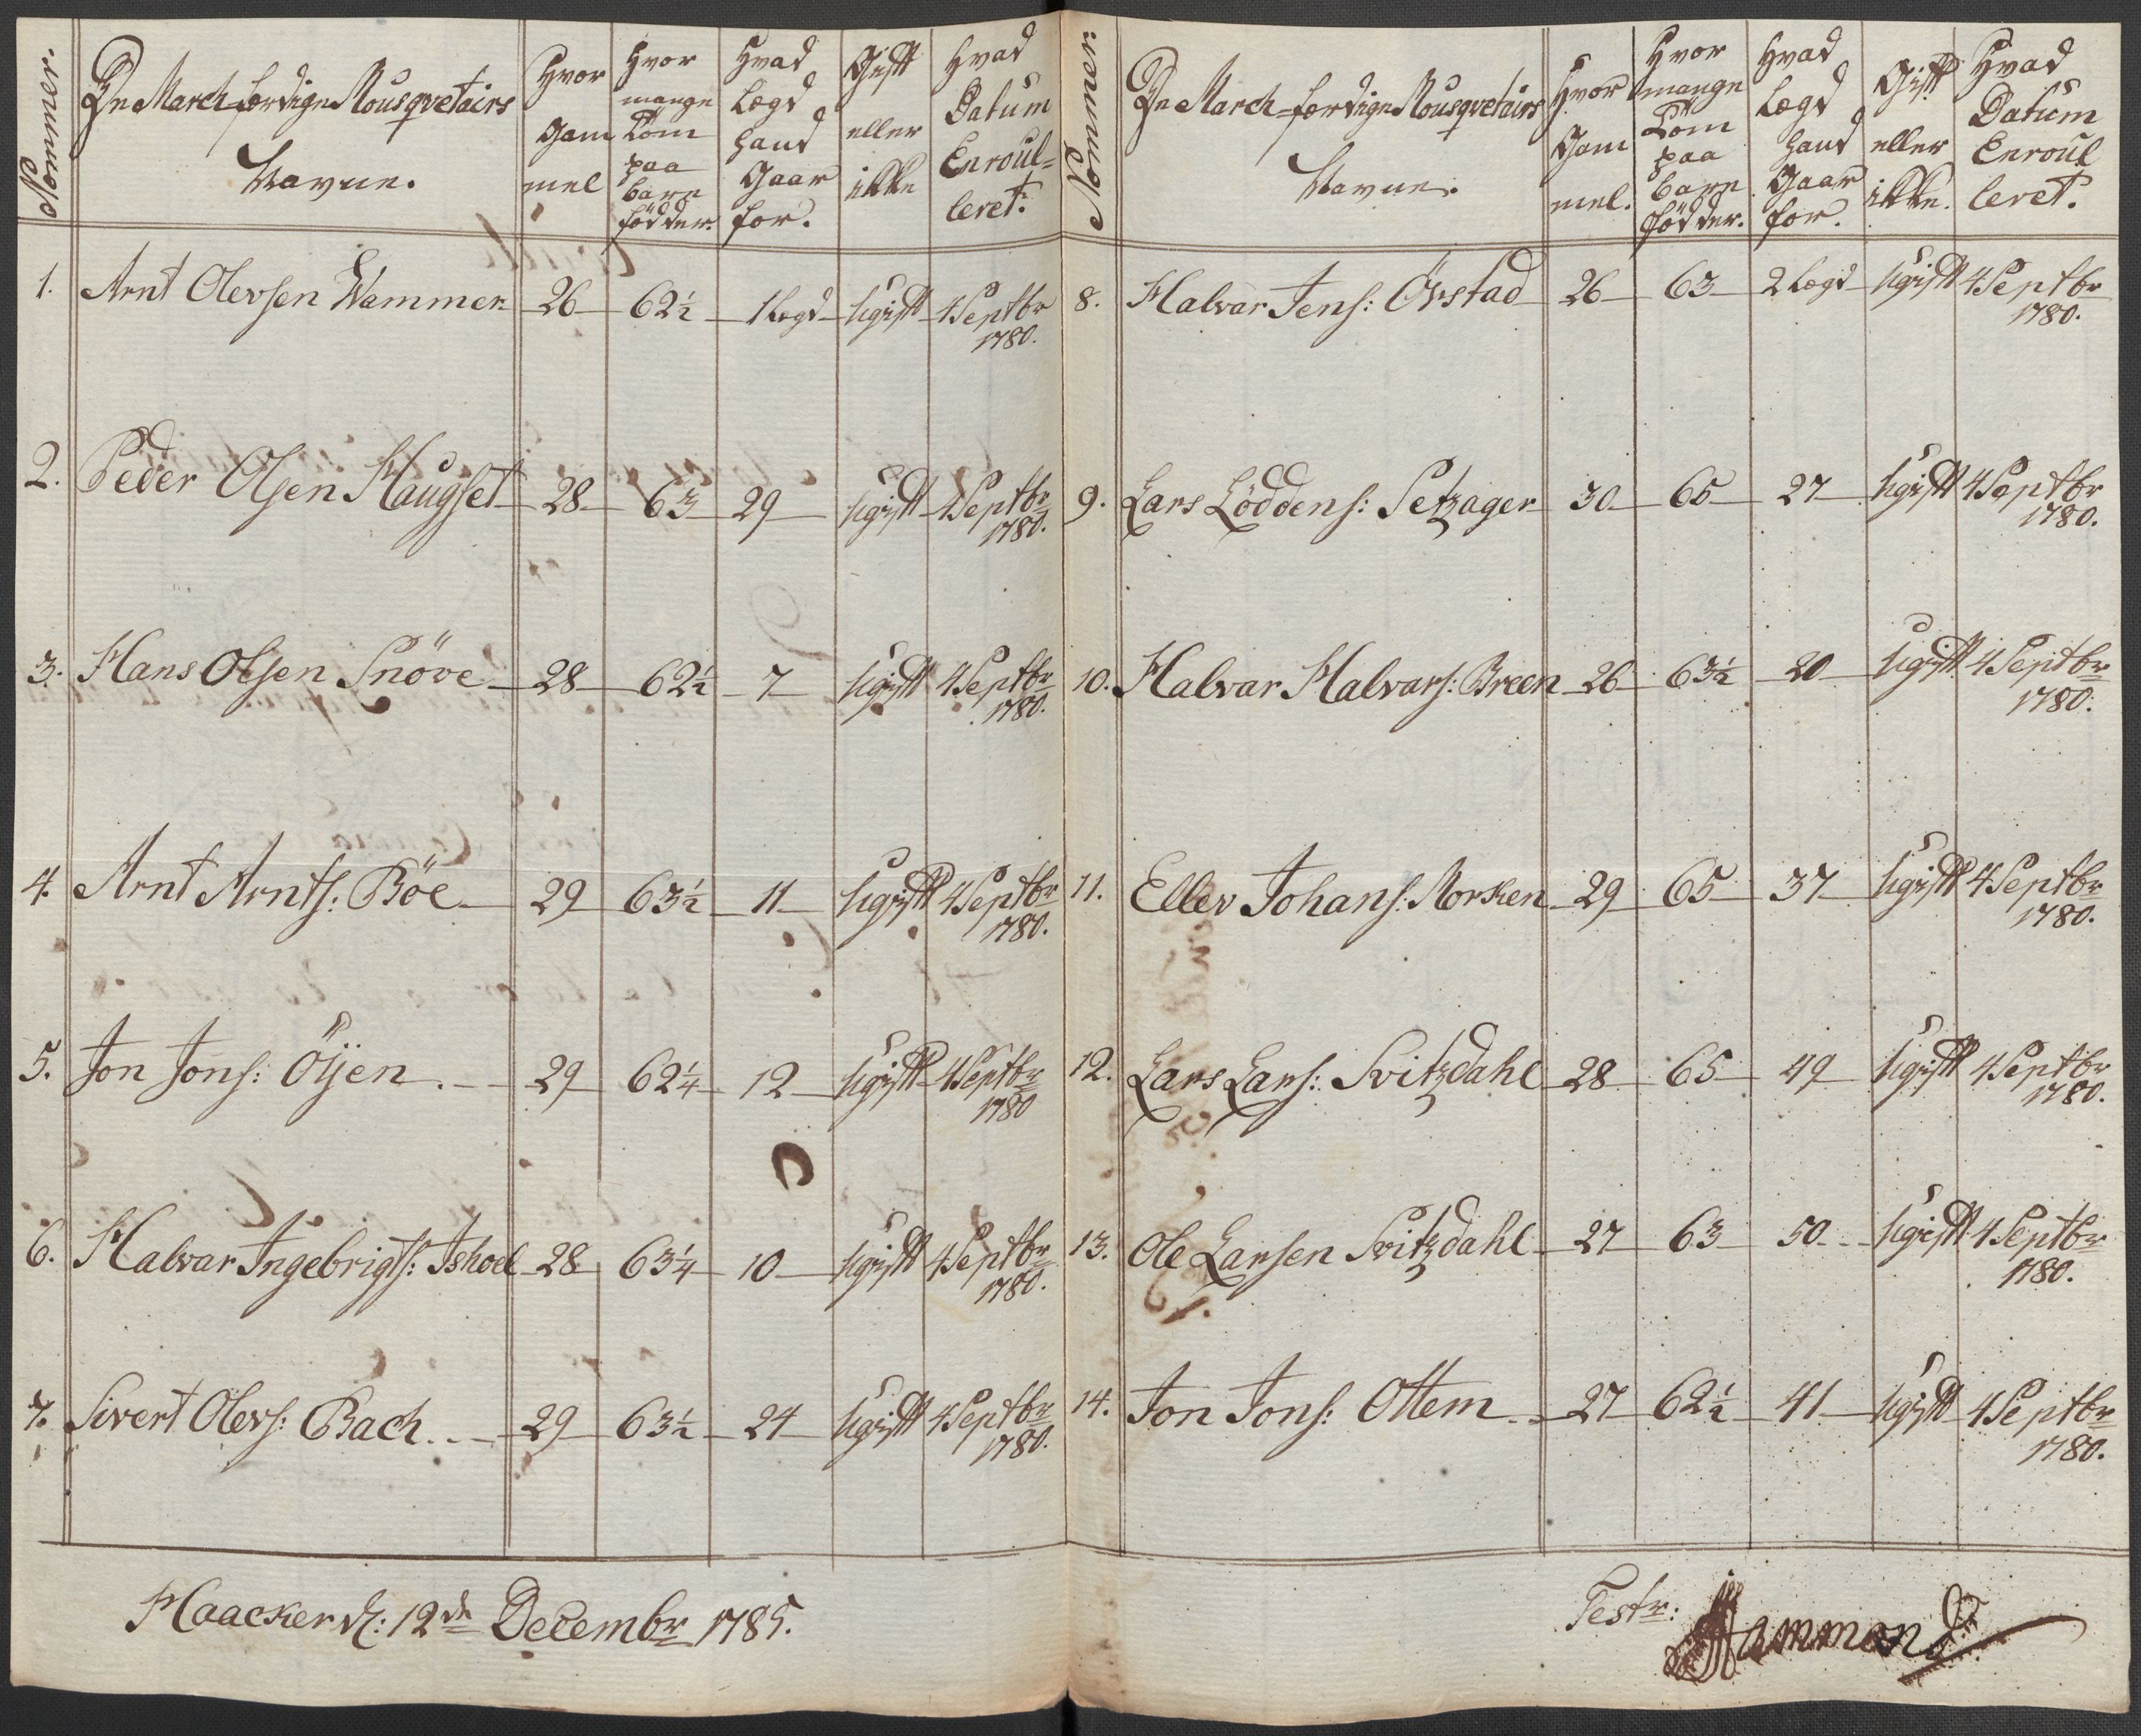 Nommer.
De March-færdige Mousqvetairs
Navne.
Hvor
Gam
mel
Hvor
mange
Tom
paa
bare
födder.
Hvad
Lægd
hand
Gaar
for.
Gift
eller
ikke
Hvad
Datum
Enroul=
leret.
1. Arnt Olevsen Wammer 26 62½ 1 Lægd Ugift 4 Septbr
1780.
2. Peder Olsen Haugset 28 63 29 Ugift 4 Septbr
1780.
3. Hans Olsen Snöve 28 62½ 7 Ugift 4 Septbr
1780.
4. Arnt Arnts: Böe 29 63½ 11 Ugift 4 Septbr
1780.
5. Jon Jons: Öijen 29 62¼ 12 Ugift 4 Septbr
1780
6. Halvar Ingebrigts: Ishoel 28 63¼ 10 Ugift 4 Septbr
1780.
7. Sivert Olevs: Bach 29 63½ 24 Ugift 4 Septbr
1780.
Haacker d: 12te Decembr 1785.
Nommer:
De March-færdige Mousqvetairs
Navne.
Hvor
Gam
mel.
Hvor
mange
Tom
paa
bare
födder.
Hvad
Lægd
hand
Gaar
for.
Gift
eller
ikke.
Hvad
Datum
Enroul
leret.
8. Halvar Jens: Örstad 26 63 2 Lægd Ugift 4 Septbr
1780.
9. Lars Löddens: Setzager 30 65 27 Ugift 4 Septbr
1780.
10. Halvar Halvars: Breen 26 63½ 20 Ugift 4 Septbr
1780.
11. Ellev Johans: Morken 29 65 37 Ugift 4 Septbr
1780.
12. Lars Lars: Svitzdahl 28 65 49 Ugift 4 Septbr
1780.
13. Ole Larsen Svitzdahl 27 63 50 Ugift 4 Septbr
1780.
14. Jon Jons: Ottem 27 62½ 41 Ugift 4 Septbr
1780.
Testr: Hammond